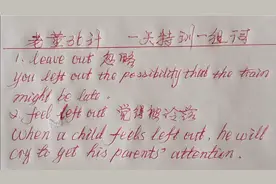 老黄3七计 一天特训一组词
1. leave out 忽略
you left out the possibility that the train
might be late.
2. feel left out 觉得被冷落
When a child feels left out, he will
cry to get his parents' attention.